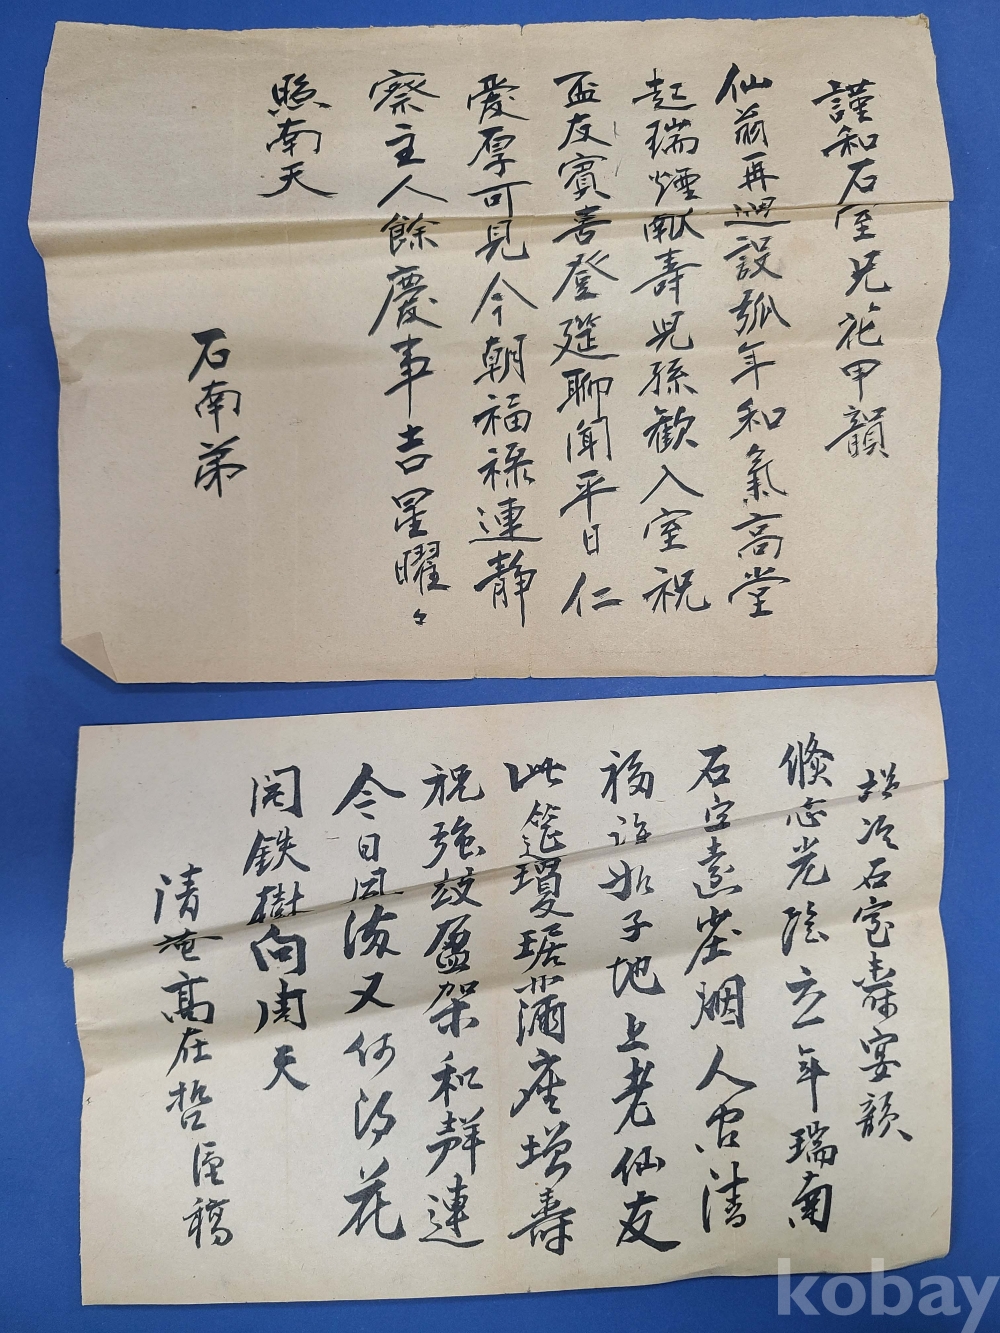 謹和石窓兄花甲韻
仙翁再逈設弧年和氣高堂
起瑞煙献壽児孫歡入室祝
盃友賓喜登筵聊聞平日仁
愛厚可見今朝福祿連静
察主人餘慶事吉星曜々
照南天
石南弟
石 壽宴韻
倐忽光陰立一年瑞南
石 烟人 清
福 子地上老仙友
此筵瓊琚滿座增壽
祝強 盈架和聲連
今日風 又何 花
開鉄樹向南天
清庵高在哲 稿
kobay